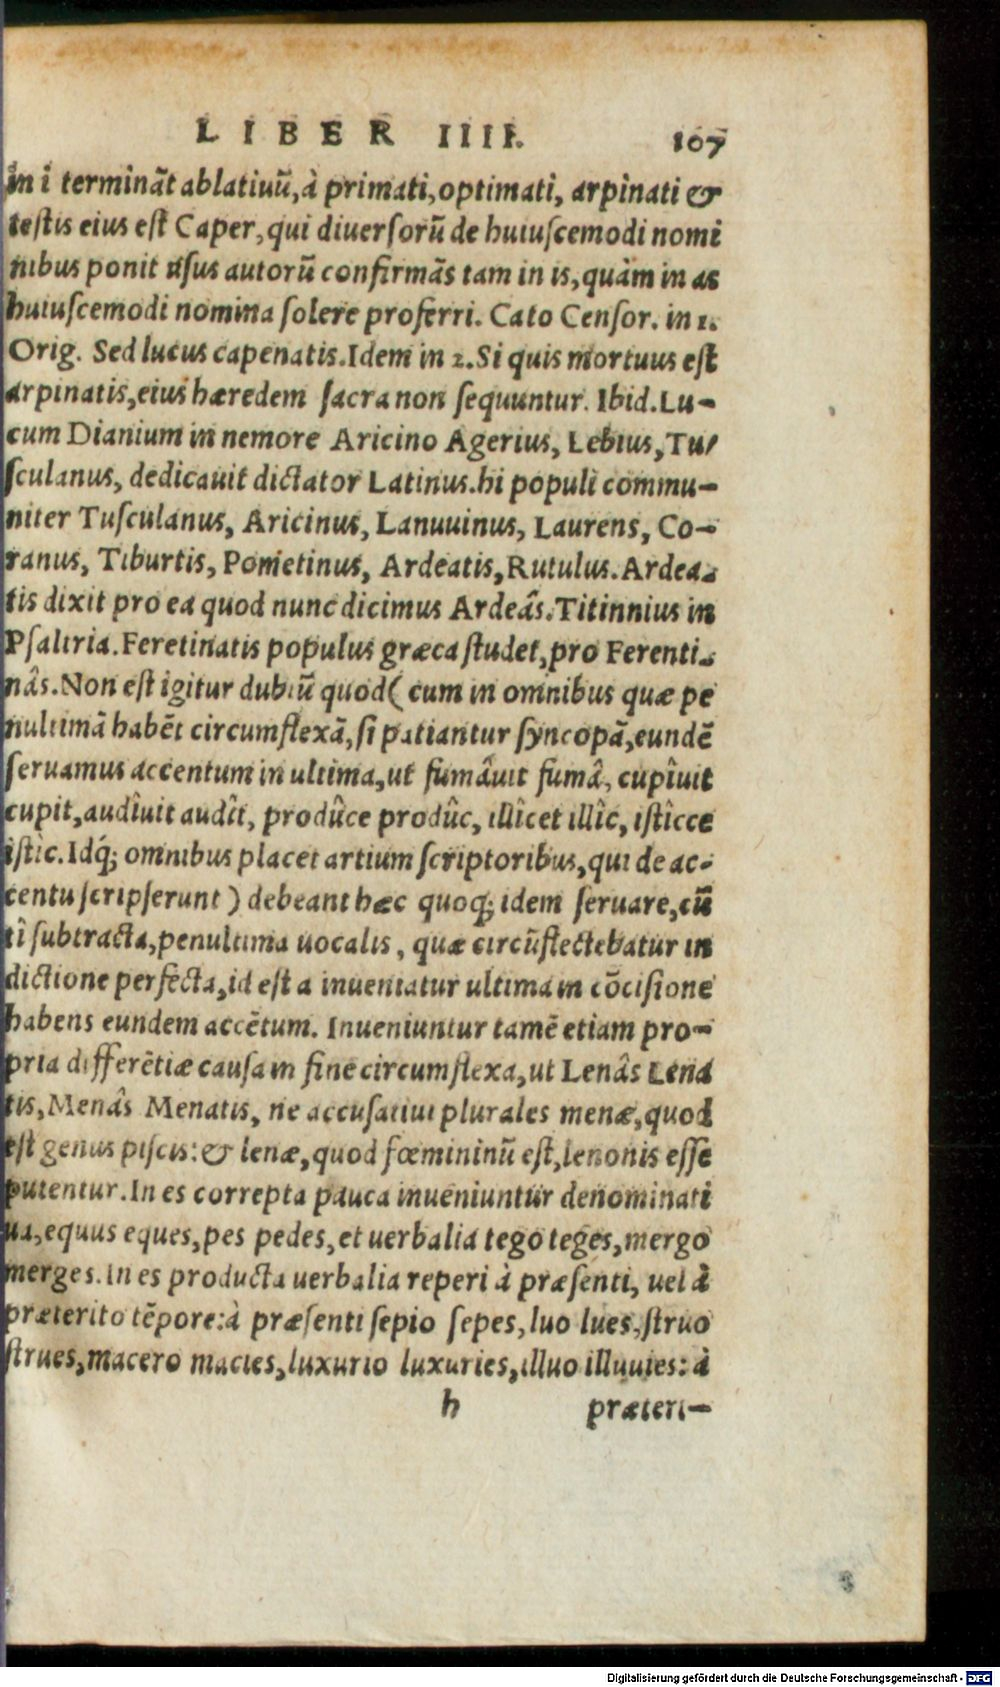 LIBER IIII. 107
in i terminãt ablatiuũ, à primati, optimati, arpinati &
testis eius est Caper, qui diuersorũ de huiuscemodi nomi
nibus ponit usus autorũ confirmãs tam in is, quàm in as
huiuscemodi nomina solere proferri. Cato Censor. in 1.
Orig. Sed lucus capenatis. Idem in 2. Si quis mortuus est
arpinatis, eius hæredem sacra non sequuntur. Ibid. Lu-
cum Dianium in nemore Aricino Agerius, Lebius, Tu/
sculanus, dedicauit dictator Latinus. hi populi commu-
niter Tusculanus, Aricinus, Lanuuinus, Laurens, Co-
ranus, Tiburtis, Pometinus, Ardeatis, Rutulus. Ardea-
tis dixit pro ea quod nunc dicimus Ardeâs. Titinnius in
Psaltria. Feretinatis populus græca studet, pro Ferenti-
nâs. Non est igitur dubiũ quod ( cum in omnibus quæ pe
nultimã habẽt circumflexã, si patiantur syncopã, eundẽ
seruamus accentum in ultima, ut fumâuit fumâ, cupîuit
cupit, audîuit audît, prodûce prodûc, illîcet illîc, istîcce
istîc. Idq́; omnibus placet artium scriptoribus, qui de ac-
centu scripserunt ) debeant hæc quoq; idem seruare, cũ
ti subtracta, penultima uocalis, quæ circũflectebatur in
dictione perfecta, id est a inueniatur ultima in cõcisione
habens eundem accẽtum. Inueniuntur tamẽ etiam pro-
pria differẽtiæ causa in fine circumflexa, ut Lenâs Lena
tis, Menâs Menatis, ne accusatiui plurales menæ, quod
est genus piscis: & lenæ, quod fœmininũ est, lenonis esse
putentur. In es correpta pauca inueniuntur denominati
ua, equus eques, pes pedes, et uerbalia tego teges, mergo
merges. In es producta uerbalia reperi à præsenti, uel à
præterito tẽpore: à præsenti sepio sepes, luo lues, struo
strues, macero macies, luxurio luxuries, illuo illuuies: à
h præteri-
Digitalisierung gefördert durch die Deutsche Forschungsgemeinschaft - DFG